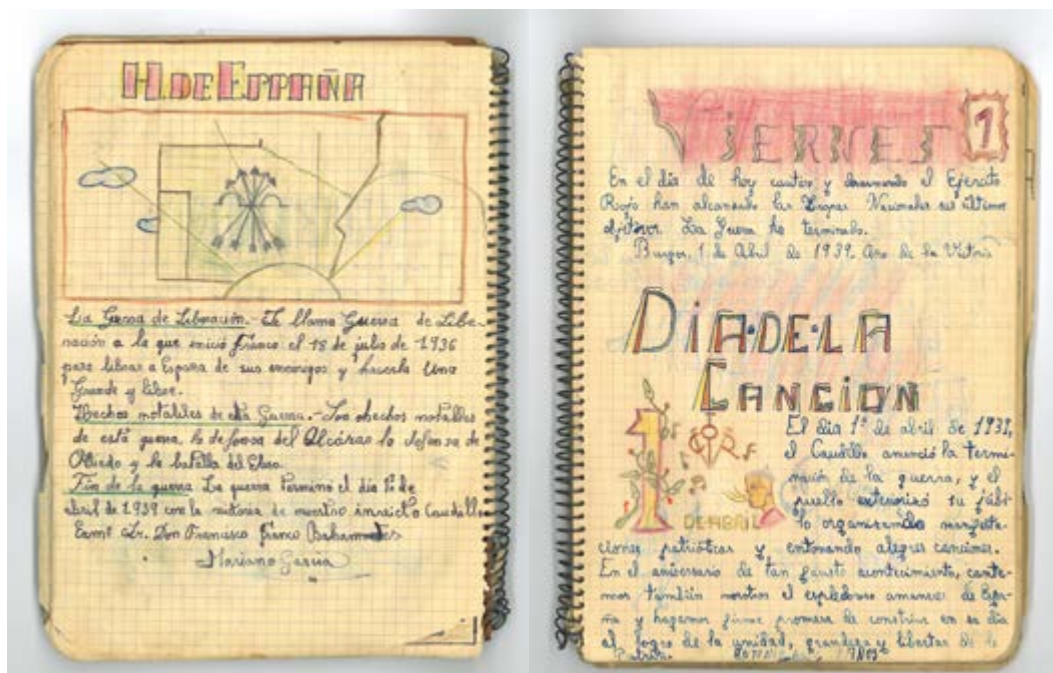 H. DE ESPAÑA
La Guerra de Liberación.- Se llama Guerra de Libe-
ración a la que inició Franco el 18 de julio de 1936
para librar a España de sus enemigos y hacerla Una
Grande y Libre.
Hechos notables de esta Guerra.- Son hechos notables
de esta guerra, la defensa del Alcázar la defensa de
Oviedo y la batalla del Ebro.
Fin de la guerra La guerra terminó el día 1º de
abril de 1939 con la victoria de nuestro invicto Caudillo
Excmº Sr. Don Francisco Franco Bahamondes
Mariano García
VIERNES 1
En el día de hoy cautivo y desarmado el Ejército
Rojo han alcanzado las Tropas Nacionales sus últimos
objetivos. La Guerra ha terminado.
Burgos, 1 de Abril de 1939. Año de la Victoria
DIA·DE·LA
CANCION
1 DE ABRIL
El día 1º de abril de 1939,
el Caudillo anunció la termi-
nación de la guerra, y el
pueblo exteriorizó su júbi-
lo organizando manifesta-
ciones patrióticas y entonando alegres canciones.
En el aniversario de tan fausto acontecimiento, cante-
mos también nosotros el esplendoroso amanecer de Espa-
ña y hagamos firme promesa de contribuir en su día
al logro de la unidad, grandeza y libertad de la
Patria.